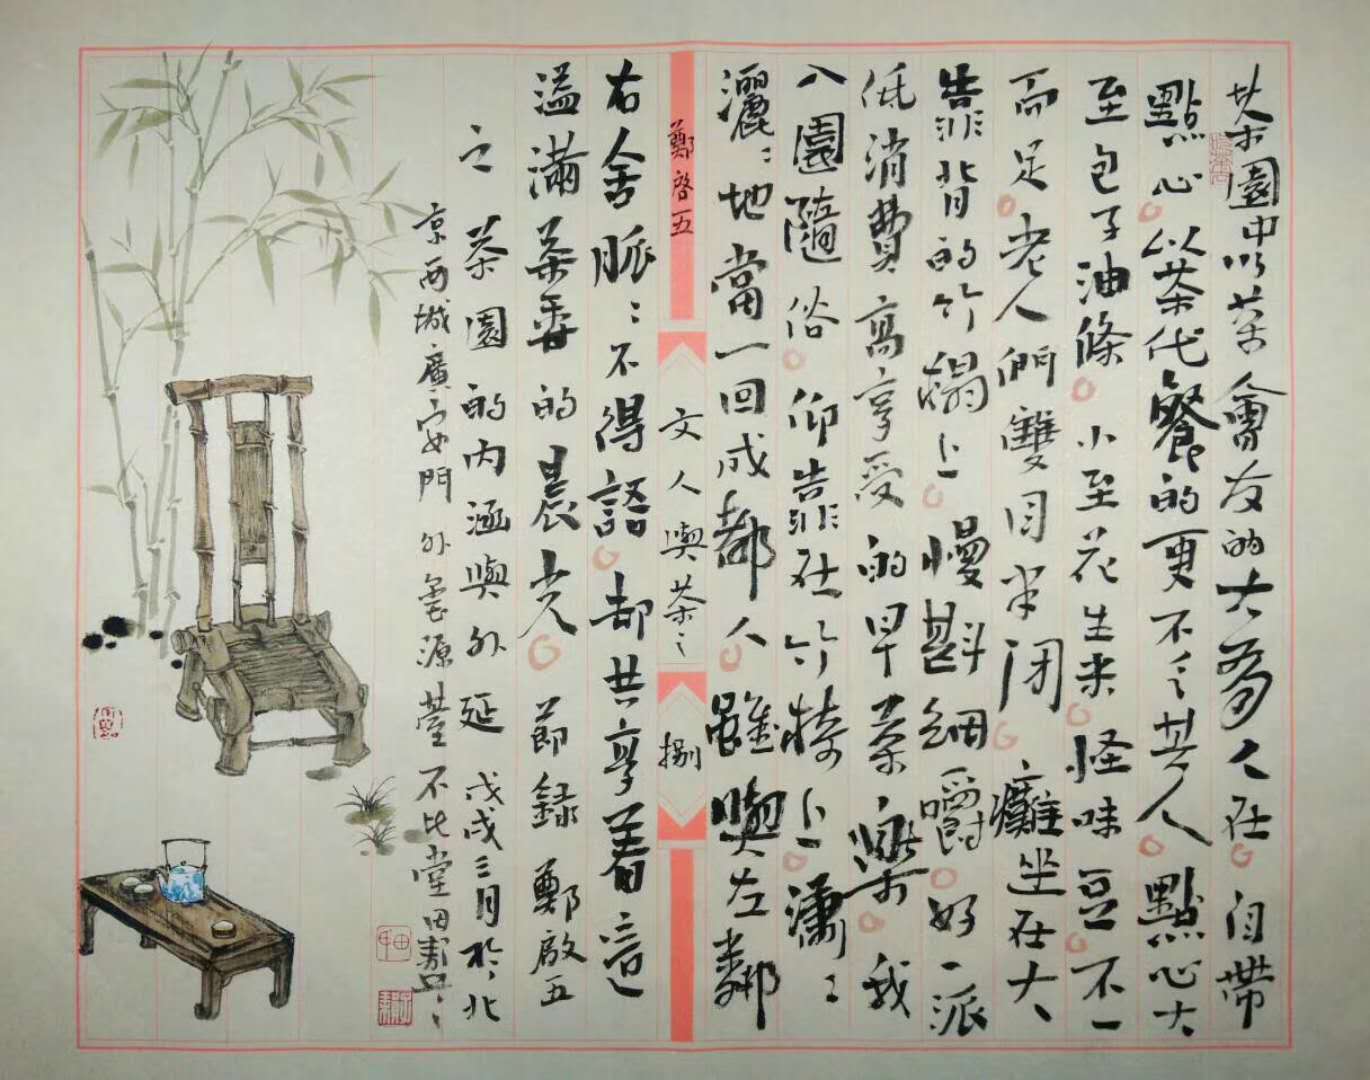 茶園中以茶會友的大有人在自帶
點心以茶代餐的更不乏其人點心大
至包子油條小至花生米怪味豆不一
而足老人們雙目半闭癱坐在大
靠背的竹榻上慢斟細嚼好一派
低消費高享受的早茶樂我
入園隨俗仰靠在竹椅上瀟〻
灑〻地當一回成都人雖與左鄰
鄭啓五
文人與茶之
捌
右舍脈〻不得語却共享着這
溢滿茶香的晨光節錄鄭啟五
之茶園的内涵與外延戊戌三月於北
京西城廣安門外
源臺不比堂田